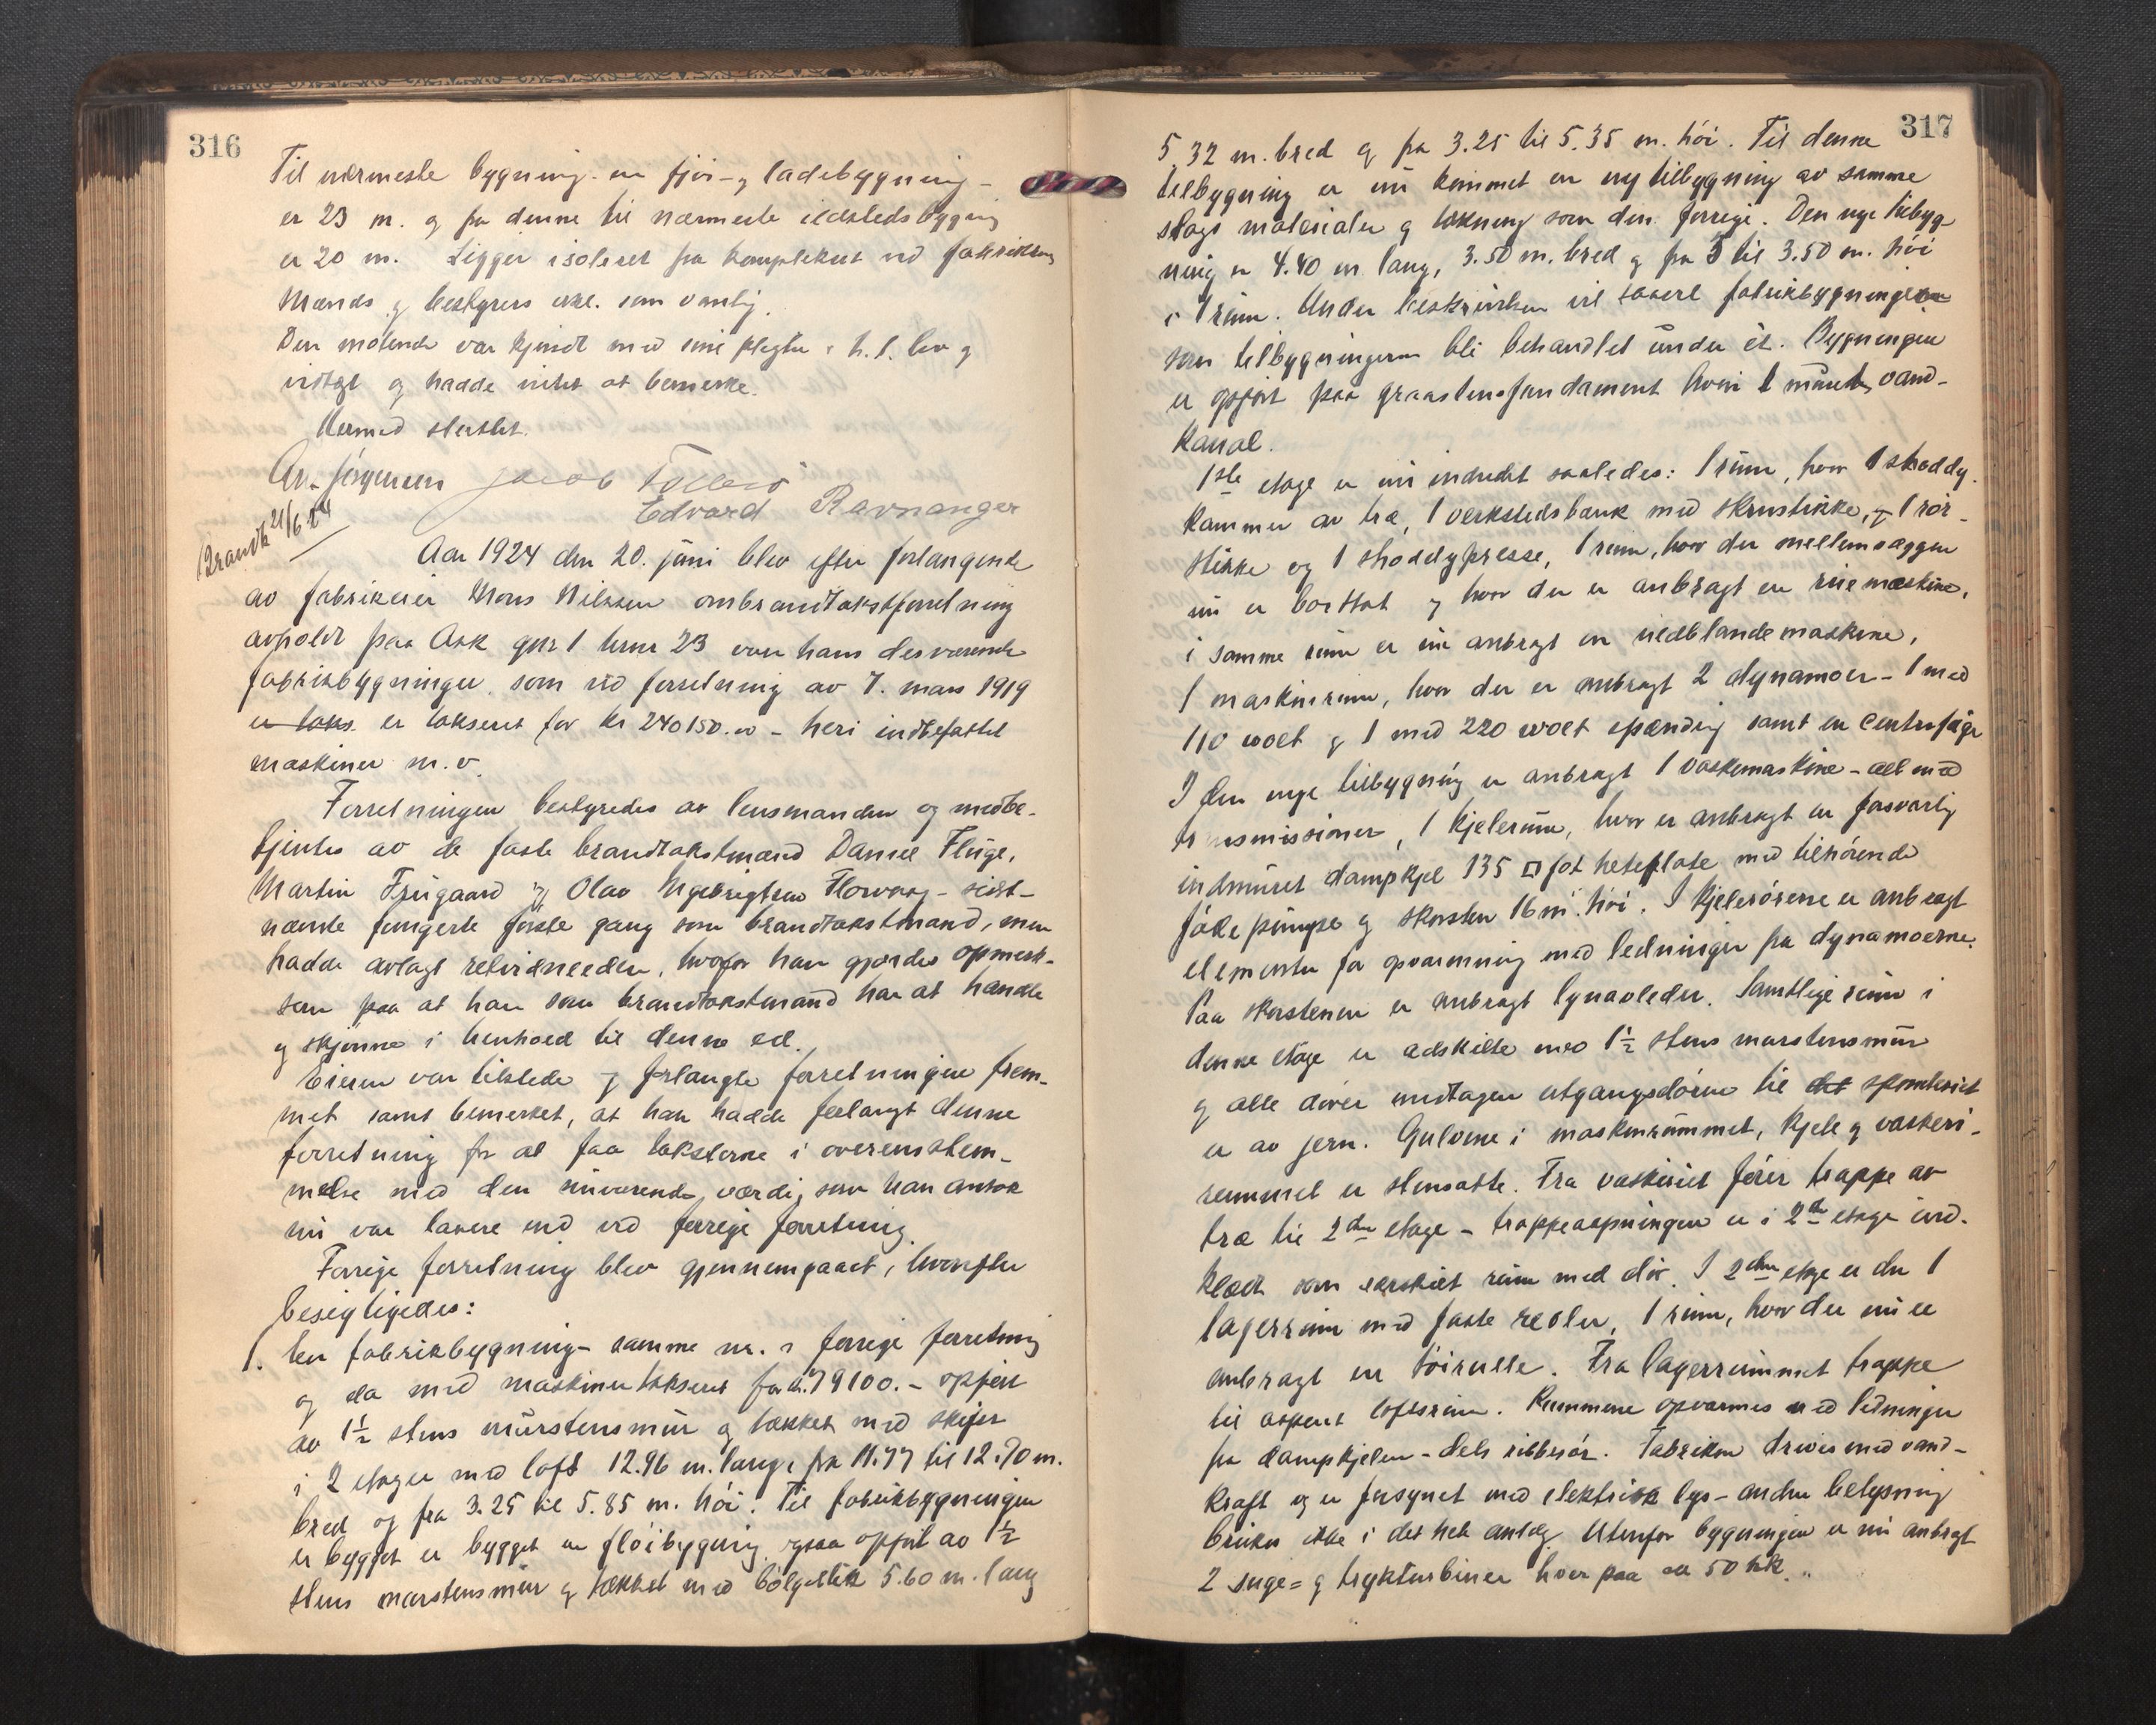 316
Til nærmeste bygning - en fjös- og ladebygning -
er 23 m. og fra denne til nærmeste ildstedsbygning
er 20 m. Ligger isoleret fra komplekset ved fabrikken
Mænds og bestyrers erkl. som vanlig.
Den mötende var kjendt med sine pligter i h. t. lov og
vedtægt og hadde intet at bemerke.
Hermed sluttet.
Ar. Jörgensen Jacob Tollev
Edvard Ravnanger
Brandtk 21/6 24
Aar 1924 den 20. juni blev efter forlangende
av fabrikeier Mons Nilssen ombrandtakstforretning
avholdt paa Ask gnr 1 brnr 23 over hans desværende
fabrikbygninger som ved forretning av 7. mars 1919
er taks. er takseret for kr 240150.00 - heri indbefattet
maskiner m. v.
Forretningen bestyredes av lensmanden og medbe-
tjentes av de faste brandtakstmænd Daniel Flüge,
Martin Fruigaard og Olav Ingebrigtsen Florvaag - sidst-
nævnte fungerte förste gang som brandtakstmand, men
hadde avlagt retvidneeden, hvorfor han gjordes opmerk-
som paa at han som brandtakstmand har at handle
og skjönne i henhold til denne ed.
Eieren var tilstede og forlangte forretningen frem-
met samt bemerket, at han hadde forlangt denne
forretning for at faa taksterne i overensstem-
melse med den nuværende værdi, som han ansaa
nu var lavere end ved forrige forretning.
Forrige forretning blev gjennemgaaet, hvorefter
besigtigedes:
1. En fabrikbygning - samme nr. i forrige forretning
og da med maskiner takseret for kr. 79100.- opfört
av 1½ stens murstensmur og tækket med skifer
i 2 etager med loft 12.96 m. lang, fra 11.77 til 12.70 m.
bred og fra 3.25 til 5.85 m. höi. Til fabrikbygningen
er bygget er bygget en flöibygning ogsaa opfört av 1½
stens murstensmur og tækket med bölgeblik 5.60 m. lang
317
5.32 m. bred og fra 3.25 til 5.35 m. höi. Til denne
tilbygning er nu kommet en ny tilbygning av samme
slags materialer og tækning som den forrige. Den nye tilbyg-
ning er 4.40 m lang, 3.50 m. bred og fra 3 til 3.50 m. höi
i 1 rum. Under beskrivelsen vil saavel fabrikbygningen
som tilbygningerne bli behandlet under ét. Bygningen
er opfört paa graastensfundament hvori 1 muret vand-
kanal.
1ste etage er nu indredet saaledes: 1 rum, hvor 1 shoddy-
kammer av træ, 1 verkstedsbænk med skrustikke, og 1 rör-
stikke og 1 shoddypresse, 1 rum, hvor der mellemvæggen
nu er borttat og hvor der er anbragt en rivemaskine,
i samme rum er nu anbragt en uldblandemaskine,
1 maskinrum, hvor der er anbragt 2 dynamoer - 1 med
110 wolt og 1 med 220 wolt spænding samt en centrifuge
I den nye tilbygning er anbragt 1 vaskemaskine - alt med
transmissioner, 1 kjelerum, hvor er anbragt en forsvarlig
indmuret dampkjel 135 □ fot heteflate med tilhörende
födepumpe og skorsten 16 m. höi. I kjelerörene er anbragt
elementer for opvarmning med ledninger fra dynamoerne.
Paa skorstenen er anbragt lynavleder. Samtlige rum i
denne etage er adskilte med 1½ stens murstensmur
og alle dörer undtagen utgangsdören til det spinderiet
er av jern. Gulvene i maskinrummet, kjele og vaskeri-
rummet er stensatte. Fra vaskeriet förer trappe av
træ til 2den etage - trappeaapningen er i 2den etage ind-
klædt som særskilt rum med dör. I 2den etage er der 1
lagerrum med faste reoler, 1 rum, hvor der nu er
anbragt en töirulle. Fra lagerrummet trappe
til aapent loftsrum. Rummene opvarmes ved ledninger
fra dampkjelen - dels ribberör. Fabrikken drives med vand-
kraft og er forsynet med elektrisk lys - anden belysning
brukes ikke i det hele anlæg. Utenfor bygningen er nu anbragt
2 suge- og trykturbiner hver paa ca 50 hk.